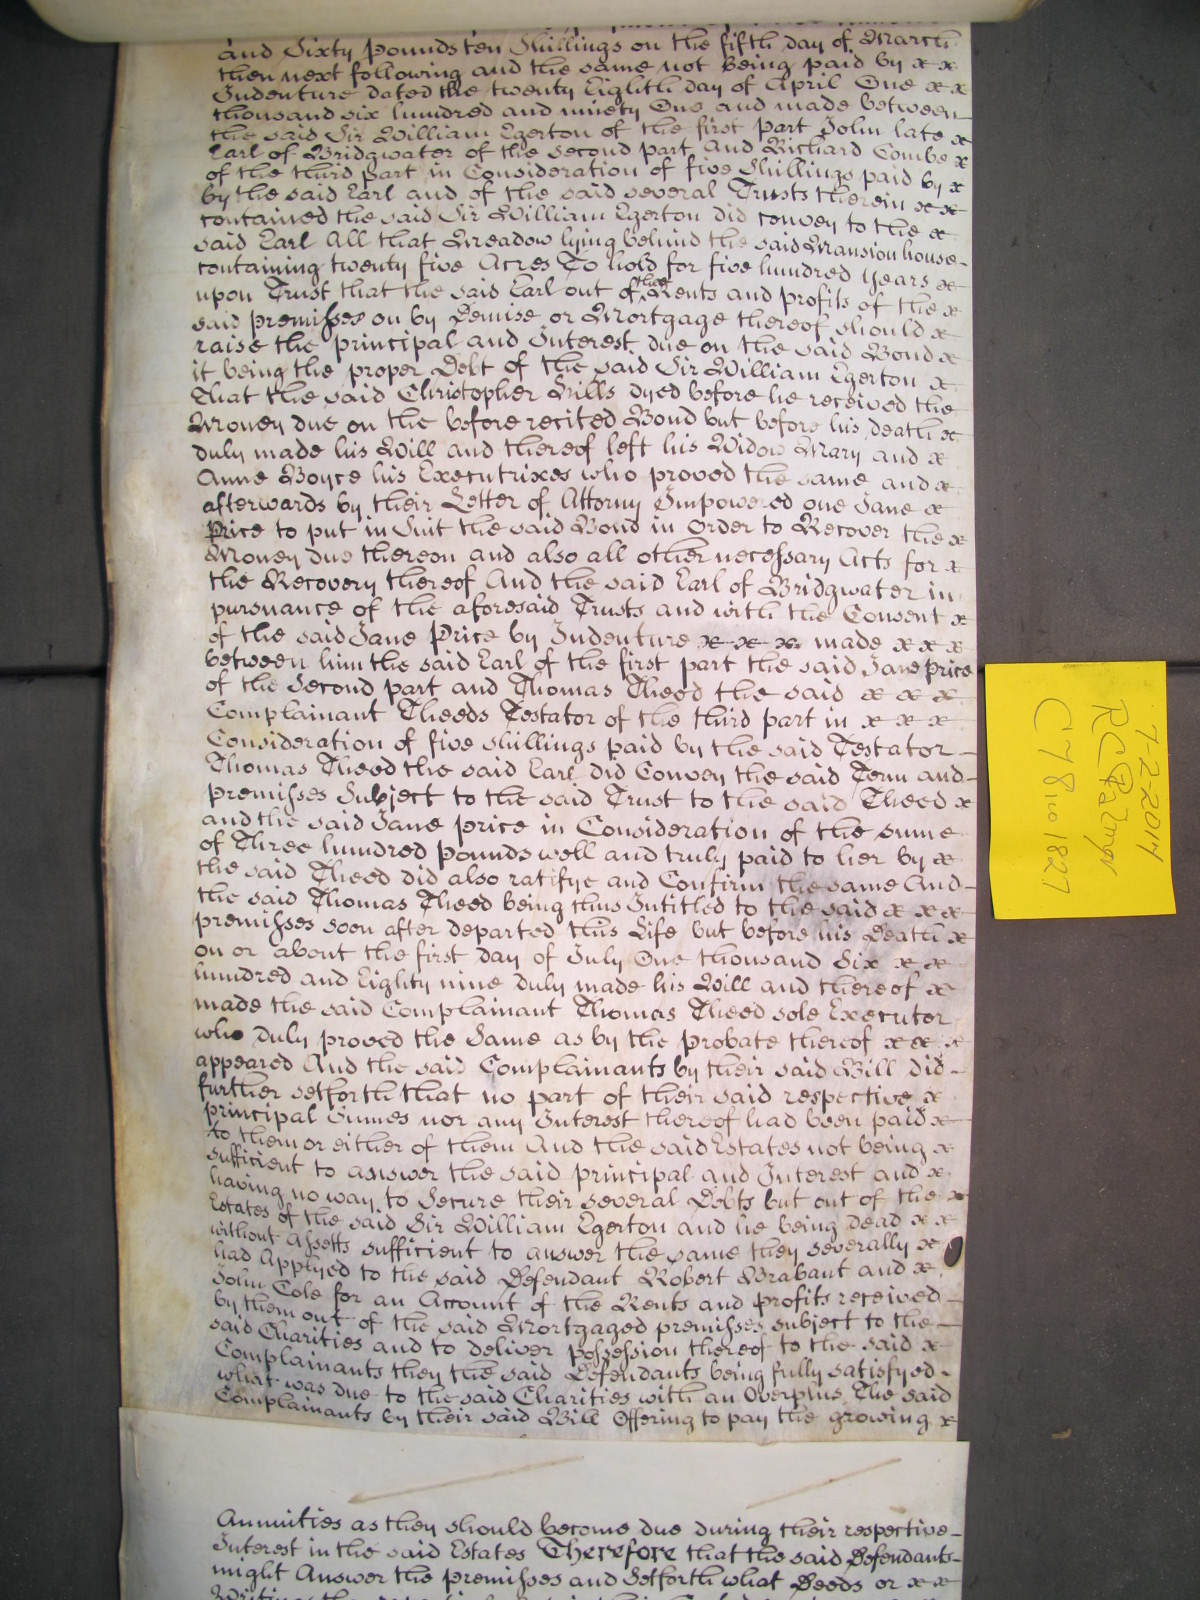 and Sixty pounds ten Shillings on the fifth day of March
then next following and the same not being paid by x x
Indenture dated the twenty Eighth day of April One x x
thousand six hundred and ninety One and made between
the said Sir William Egerton of the first part John late x
Earl of Bridgwater of the Second part and Richard Combe x
of the third part in Consideration of five Shillings paid by x
by the said Earl and of the said several Trusts therein x x
contained the said Sir William Egerton did convey to the x
said Earl All that Meadow lying behind the said Mansion house
containing twenty five Acres To hold for five hundred years x
upon Trust that the said Earl out of the Rents and profits of the x
said premisses on by Demise or Mortgage thereof should x
raise the principal and Interest due on the said Bond x
it being the proper Debt of the said Sir William Egerton x
that the said Christopher Sills dyed before he received the
Money due on the before recited Bond but before his death x
duly made his Will and thereof left his Widow Mary and x
Anne Boyce his Executrixes who proved the same and x
afterwards by their Letter of Attorny Impowered one Jane x
Price to put in Suit the said Bond in Order to Recover the x
Money due thereon and also all other necessary Acts for x
the Recovery thereof And the said Earl of Bridgwater in
pursuance of the aforesaid Trusts and with the Consent x
of the said Jane Price by Indenture x x x made x x x
between him the said Earl of the first part the said Jane Price
of the Second part and Thomas Theed the said x x x
Complainant Theeds Testator of the third part in x x x
Consideration of five shillings paid by the said Testator
Thomas Theed the said Earl did Convey the said Term and
premisses Subject to the said Trust to the said Theed x
and the said Jane price in Consideration of the sume
of Three hundred pounds well and truly paid to her by x
the said Theed did also ratifye and Confirm the same And
the said Thomas Theed being thus Intitled to the said x x x
premisses soon after departed this Life but before his Death x
on or about the first day of July One thousand Six x x
hundred and Eighty nine duly made his Will and thereof x
made the said Complainant Thomas Theed sole Executor
who duly proved the Same as by the probate thereof x x x
appeared And the said Complainants by their said Bill did
further setforth that no part of their said respective x
principal Summes nor any Interest thereof had been paid x
to them or either of them And the said Estates not being x
sufficient to answer the said principal and Interest and x
having no way to Secure their several Debts but out of the x
Estates of the said Sir William Egerton and he being dead x x
without Assetts sufficient to answer the same they severally x
had Applyed to the said Defendant Robert Brabant and x
John Cole for an Account of the Rents and profits received
by them out of the said Mortgaged premisses subject to the
said Charities and to deliver possession thereof to the said x
Complainants they the said Defendants being fully satisfyed
what was due to the said Charities with an Overplus The said
Complainants by their said Bill Offering to pay the growing x
Annuities as they should become due during their respective
Interest in the said Estates Therefore that the said Defendants
might Answer the premisses and Setforth what Deeds or x x
7-2-2014
C78 1827